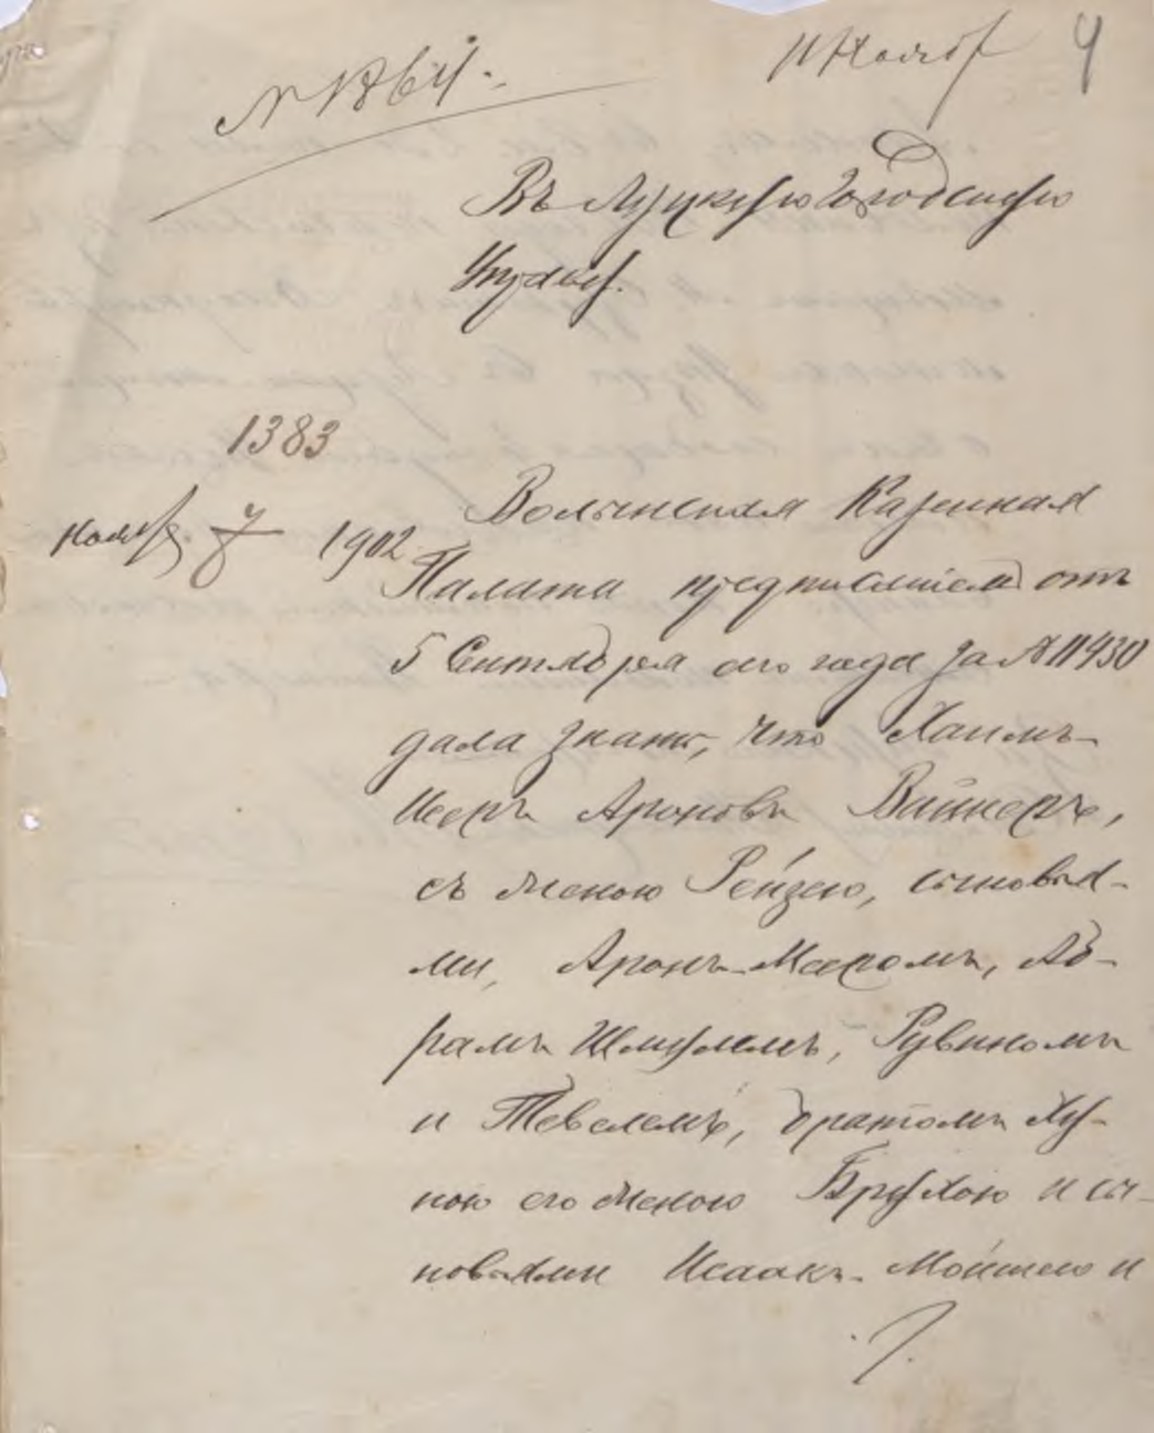 4
Въ Луцкую Городскую
Управу.
1383
Ноябр. 1902
Волынская Казенная
Палата предписаніемъ отъ
5 Сентября сего года за № 11430
дала знать, что Хаимъ-
Исеръ Ароновъ Вайнеръ,
съ женою Рейзею, сыновья-
ми, Аронъ-Мееромъ, Аб-
рамъ Шмулемъ, Рувиномъ
и Тевелемъ, братомъ Ху-
ною его женою Брухою и сы-
новьями Исаакъ-Мойшею и